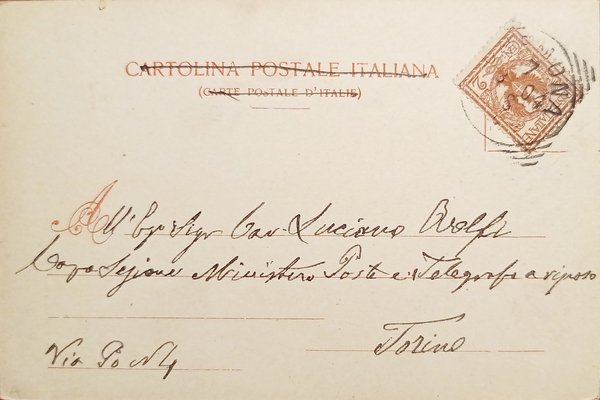 CARTOLINA POSTALE ITALIANA
(CARTE POSTALE D'ITALIE)
All' Egr. Sigr Cav. Luciano
Capo Sezione Ministero Poste e Telegrafi a riposo
Torino
Via Po N 4